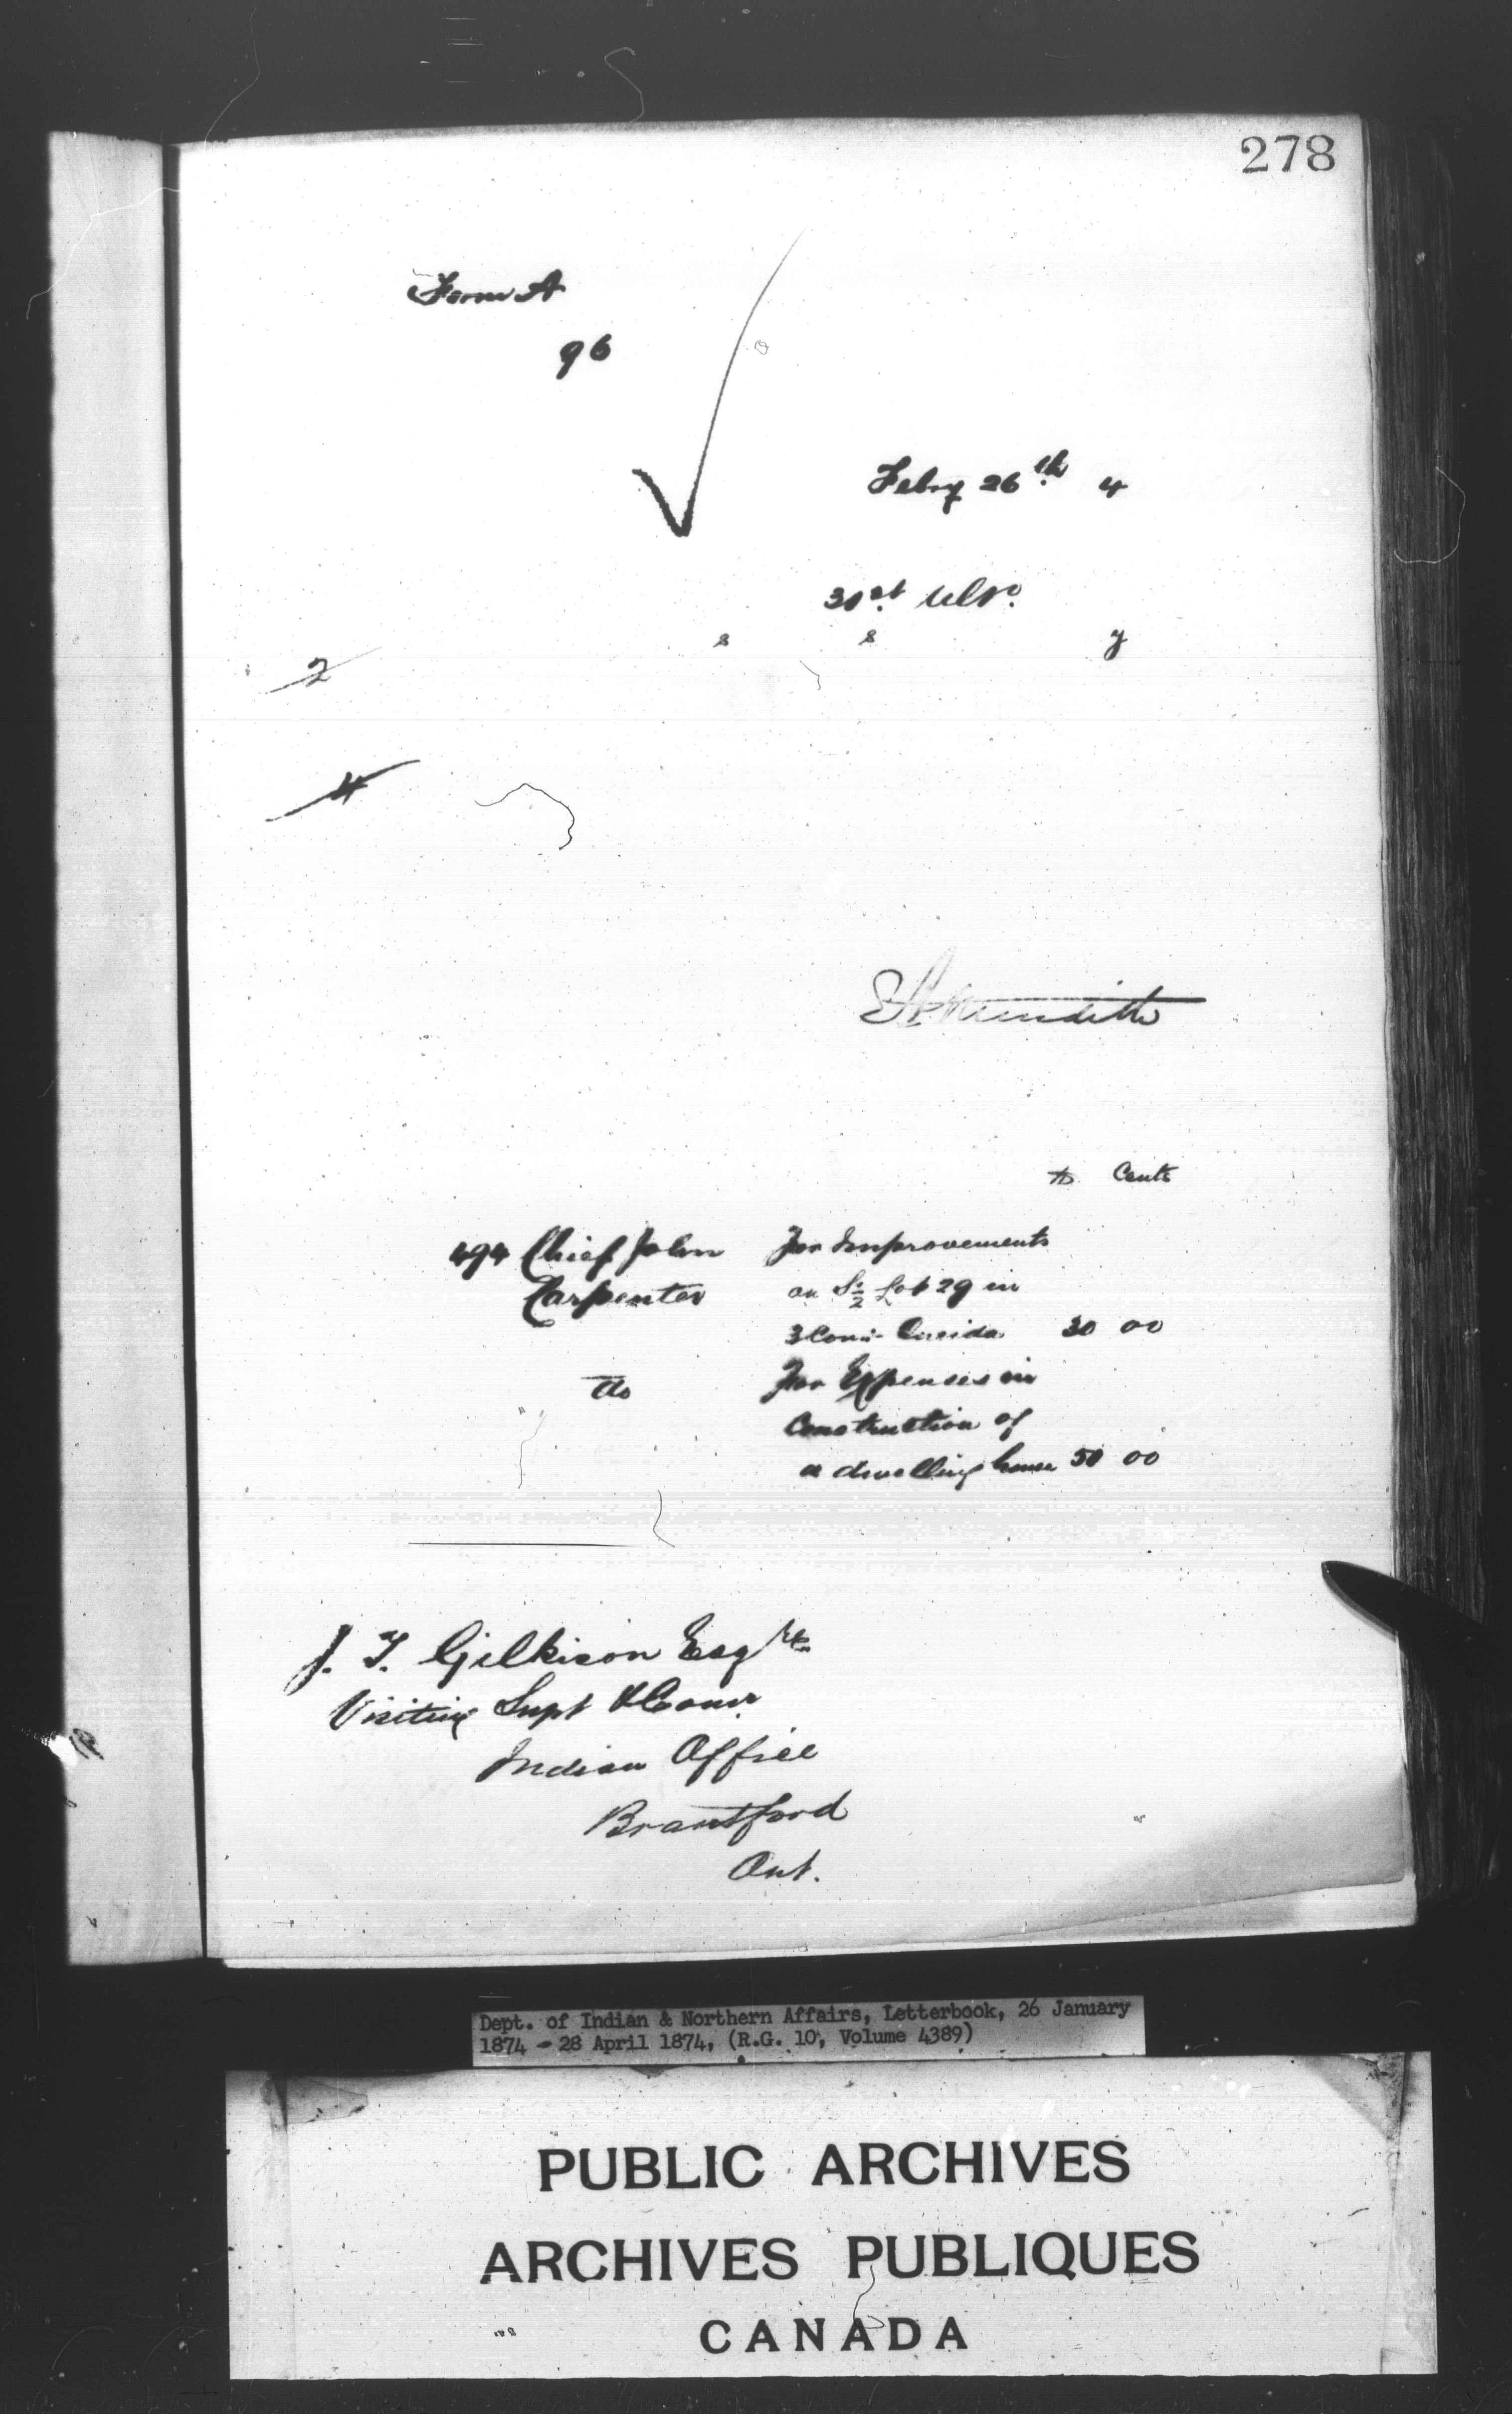 278
Form A
96
Feby 26th 4
31st Ulto.
s s y
2
4
E A Meredith
$ Cents
494 Chief John For Improvements
Carpenter on S ½ Lot 29 in
3 Con: Oneida 30 00
do For Expenses in
Construction of
a dwelling house 50 00
J. T. Gilkison Esqre
Visiting Supt & Comr
Indian Office
Brantford
Ont.
Dept. of Indian & Northern Affairs, Letterbook, 26 January
1874 - 28 April 1874, (R.G. 10, Volume 4389)
PUBLIC ARCHIVES
ARCHIVES PUBLIQUES
CANADA